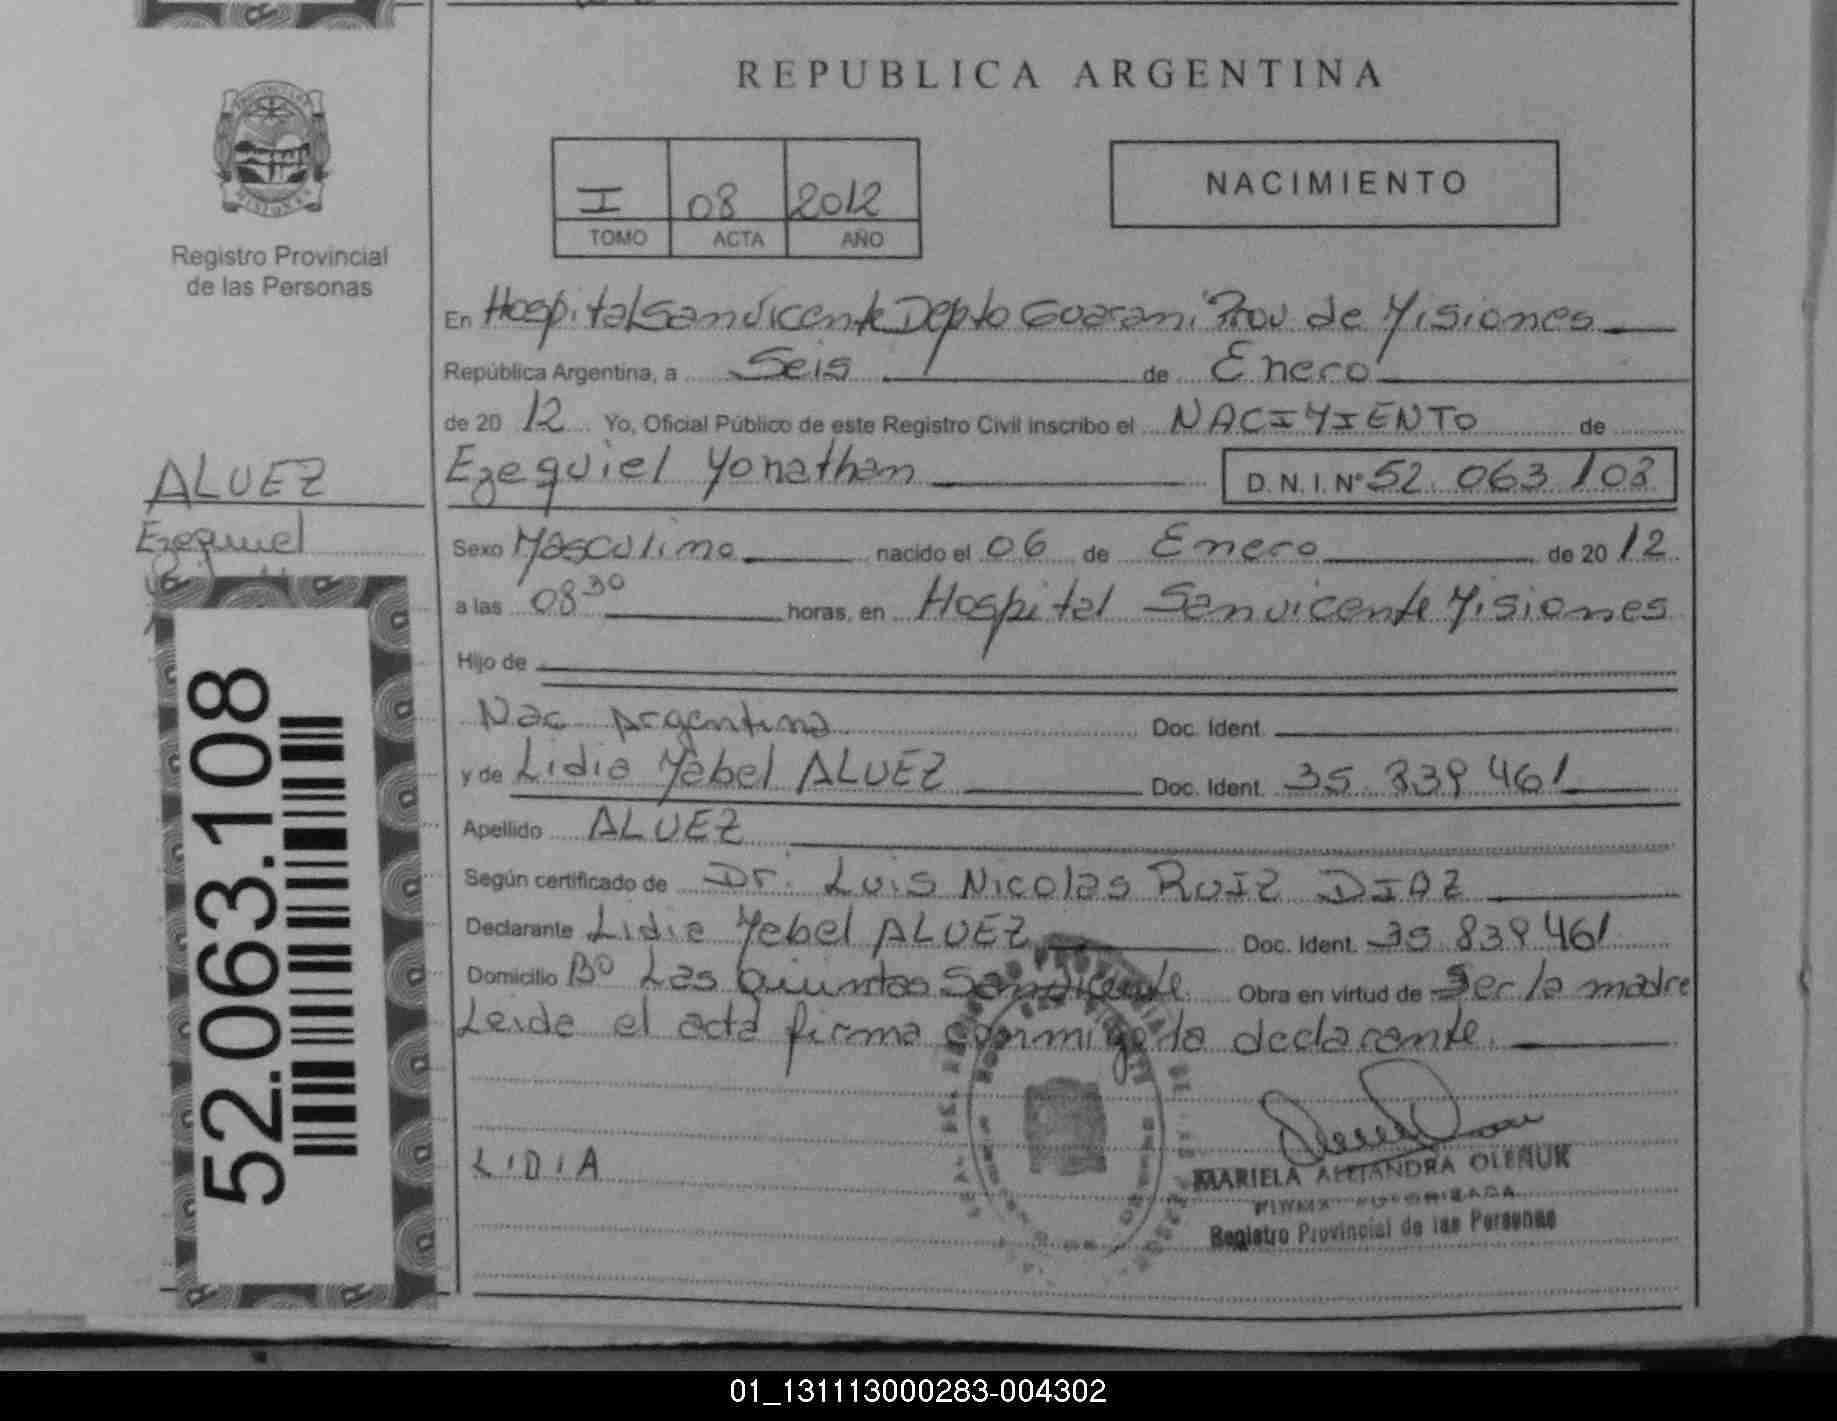 REPUBLICA ARGENTINA
I 08 2012
TOMO ACTA AÑO
NACIMIENTO
Registro Provincial
de las Personas
En Hospital San Vicente Depto Guarani Prov de Misiones
República Argentina, a Seis de Enero
de 2012 Yo, Oficial Público de este Registro Civil inscribo el NACIMIENTO de
Ezequiel Yonathan D.N.I. Nº 52.063.108
ALVEZ
Ezequiel
Sexo Masculino nacido el 06 de Enero de 2012
a las 08³⁰ horas, en Hospital San Vicente Misiones
Hijo de
Nac Argentina Doc. Ident.
y de Lidia Mabel ALVEZ Doc. Ident. 35.839.461
Apellido ALVEZ
Según certificado de Dr. Luis Nicolas RUIZ DIAZ
Declarante Lidia Mabel ALVEZ Doc. Ident. 35.839.461
Domicilio Bº Las Quintas San Vicente Obra en virtud de Ser la madre
Leida el acta firma conmigo la declarante.
52.063.108
LIDIA
MARIELA ALEJANDRA OLENUK
FIRMA AUTORIZADA
Registro Provincial de las Personas
01_131113000283-004302